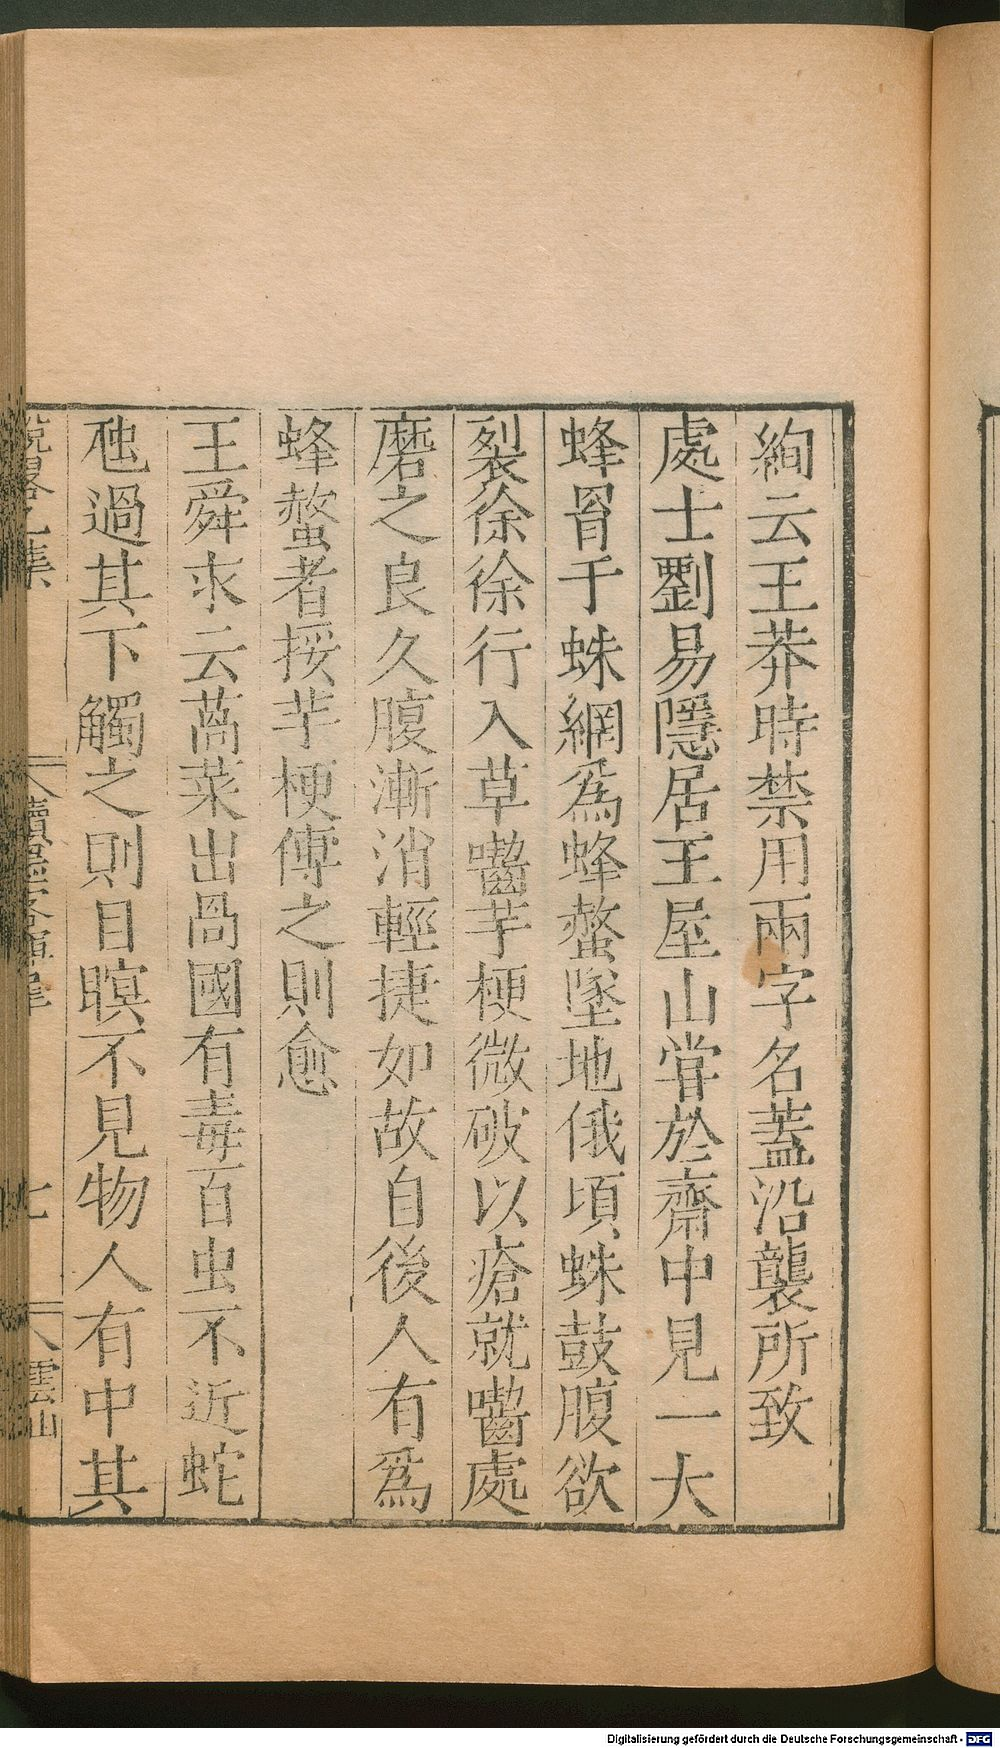 絢云王莽時禁用兩字名蓋沿襲所致
處士劉易隱居王屋山嘗於齋中見一大
蜂罥于蛛網為蜂螫墜地俄頃蛛鼓腹欲
裂徐徐行入草嚙芋梗微破以瘡就嚙處
磨之良久腹漸消輕捷如故自後人有爲
蜂螫者挼芋梗傅之則愈
王舜求云萵菜出咼國有毒百虫不近蛇
虺過其下觸之則目瞑不見物人有中其
說畧乙集
續墨客揮犀
七
雲山
Digitalisierung gefördert durch die Deutsche Forschungsgemeinschaft - DFG